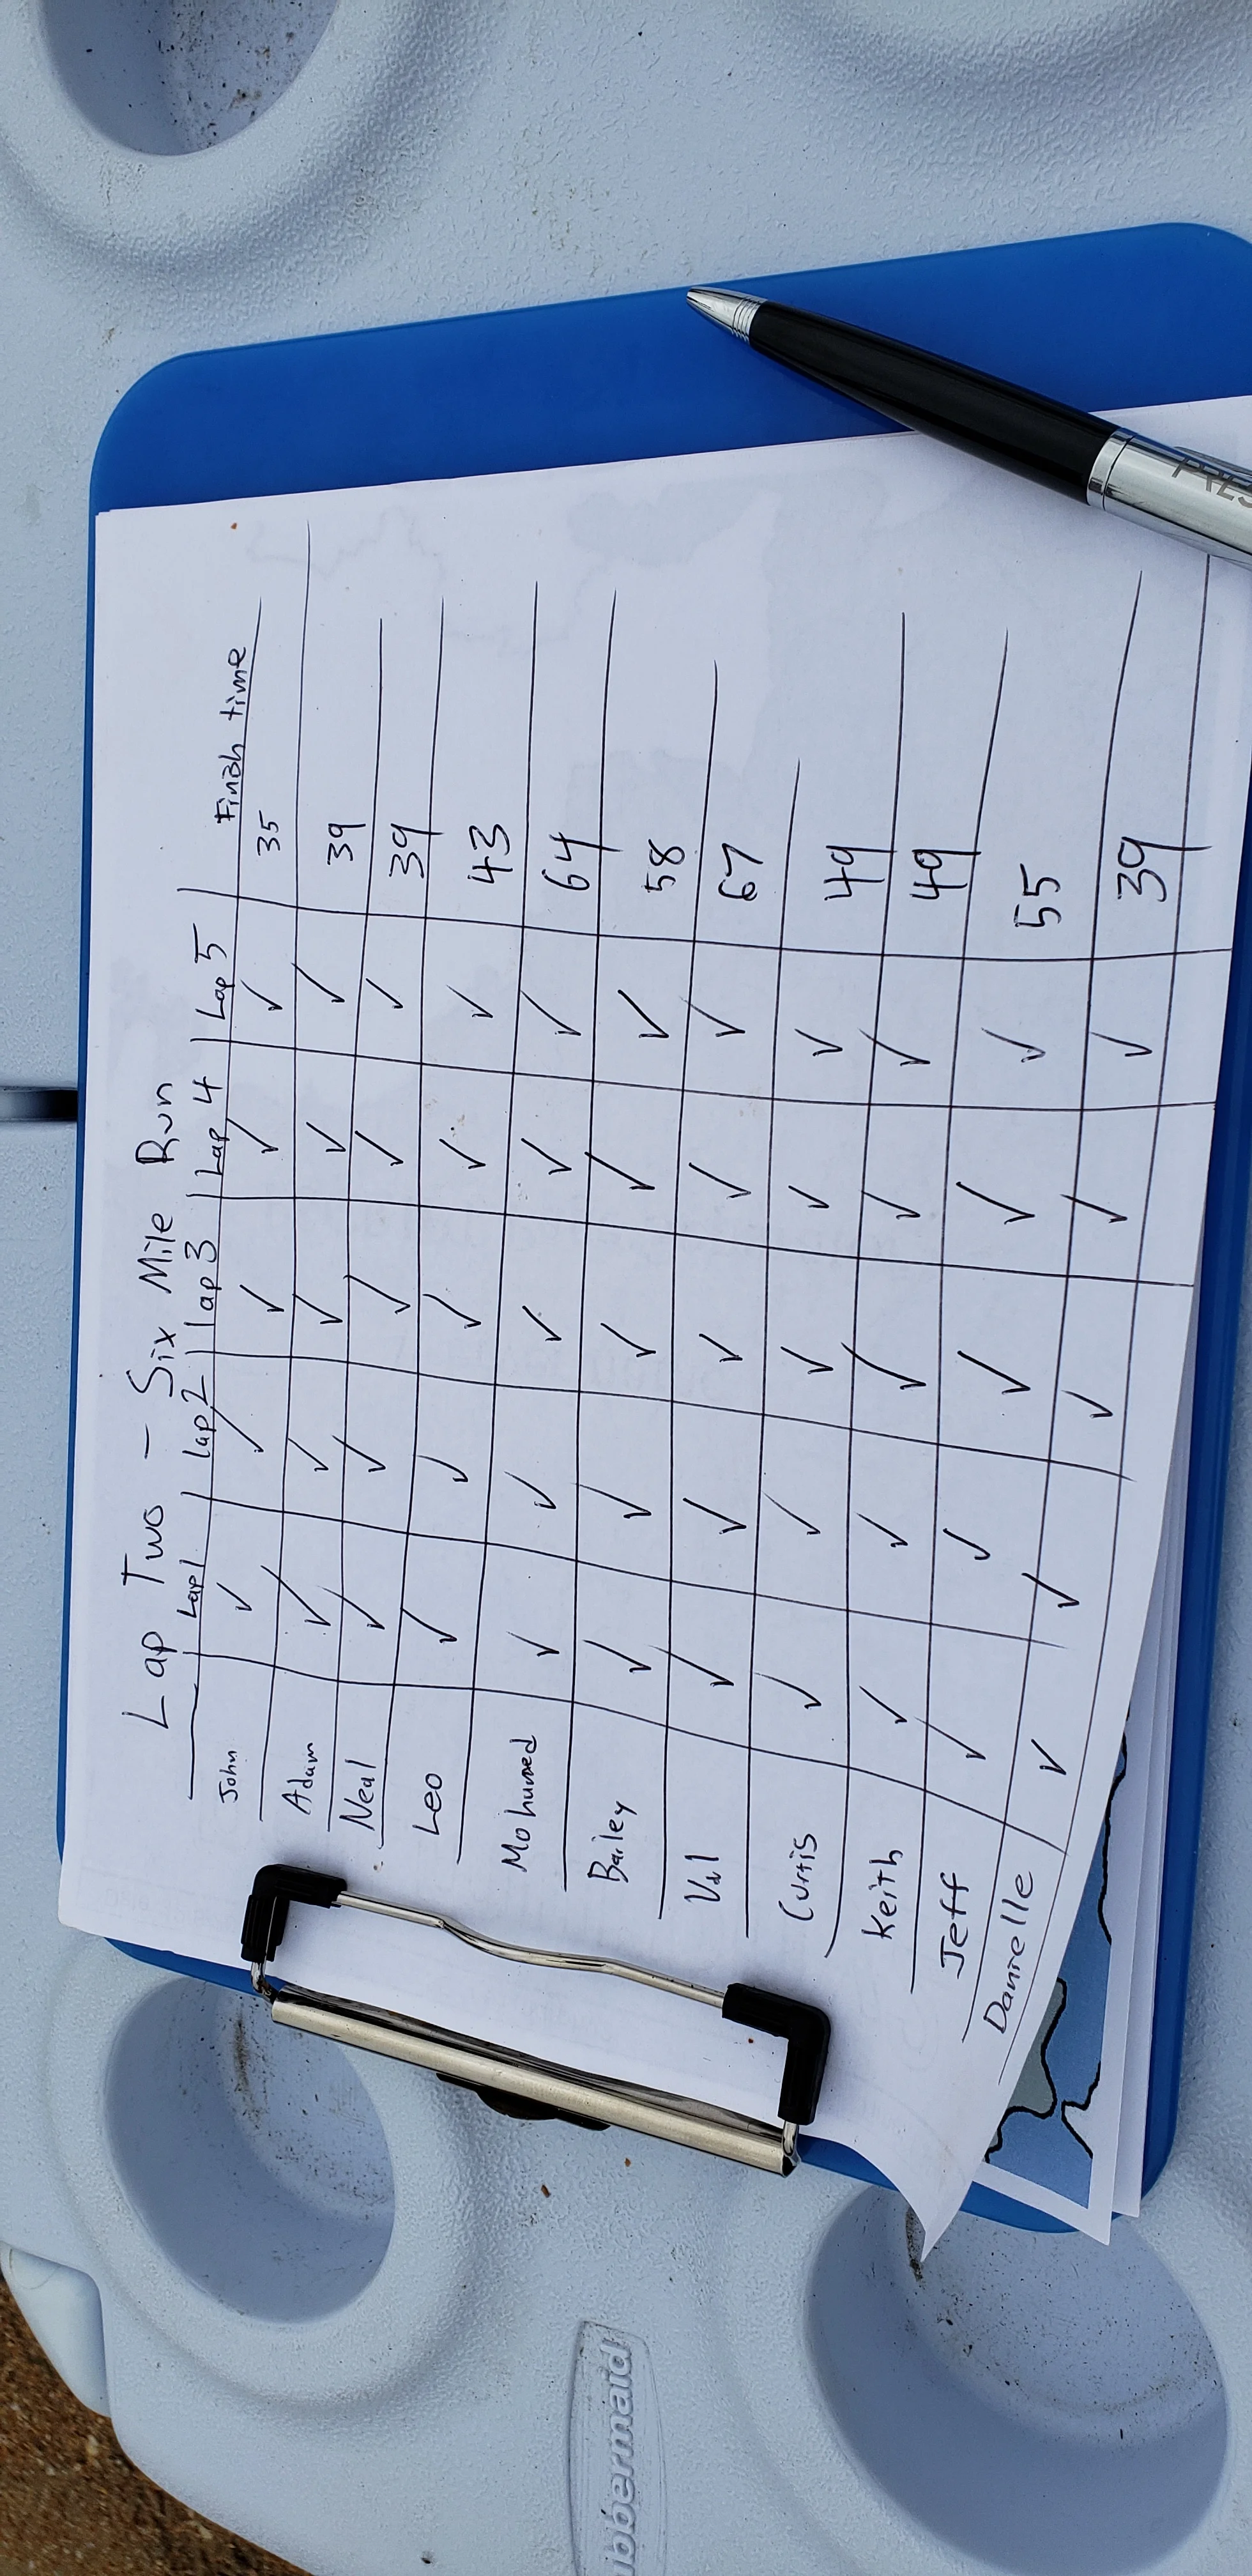 Lap Two - Six Mile Run
Lap 1 | lap 2 | lap 3 | Lap 4 | Lap 5 Finish time
John ✓ ✓ ✓ ✓ ✓ 35
Adam ✓ ✓ ✓ ✓ ✓ 39
Neal ✓ ✓ ✓ ✓ ✓ 39
Leo ✓ ✓ ✓ ✓ ✓ 43
Mohumed ✓ ✓ ✓ ✓ ✓ 64
Bailey ✓ ✓ ✓ ✓ ✓ 58
Val ✓ ✓ ✓ ✓ ✓ 67
Curtis ✓ ✓ ✓ ✓ ✓ 49
Keith ✓ ✓ ✓ ✓ ✓ 49
Jeff ✓ ✓ ✓ ✓ ✓ 55
Danielle ✓ ✓ ✓ ✓ ✓ 39
PRES
ubbermaid